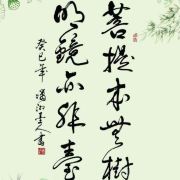 菩提本無樹
明鏡亦非臺
癸巳年